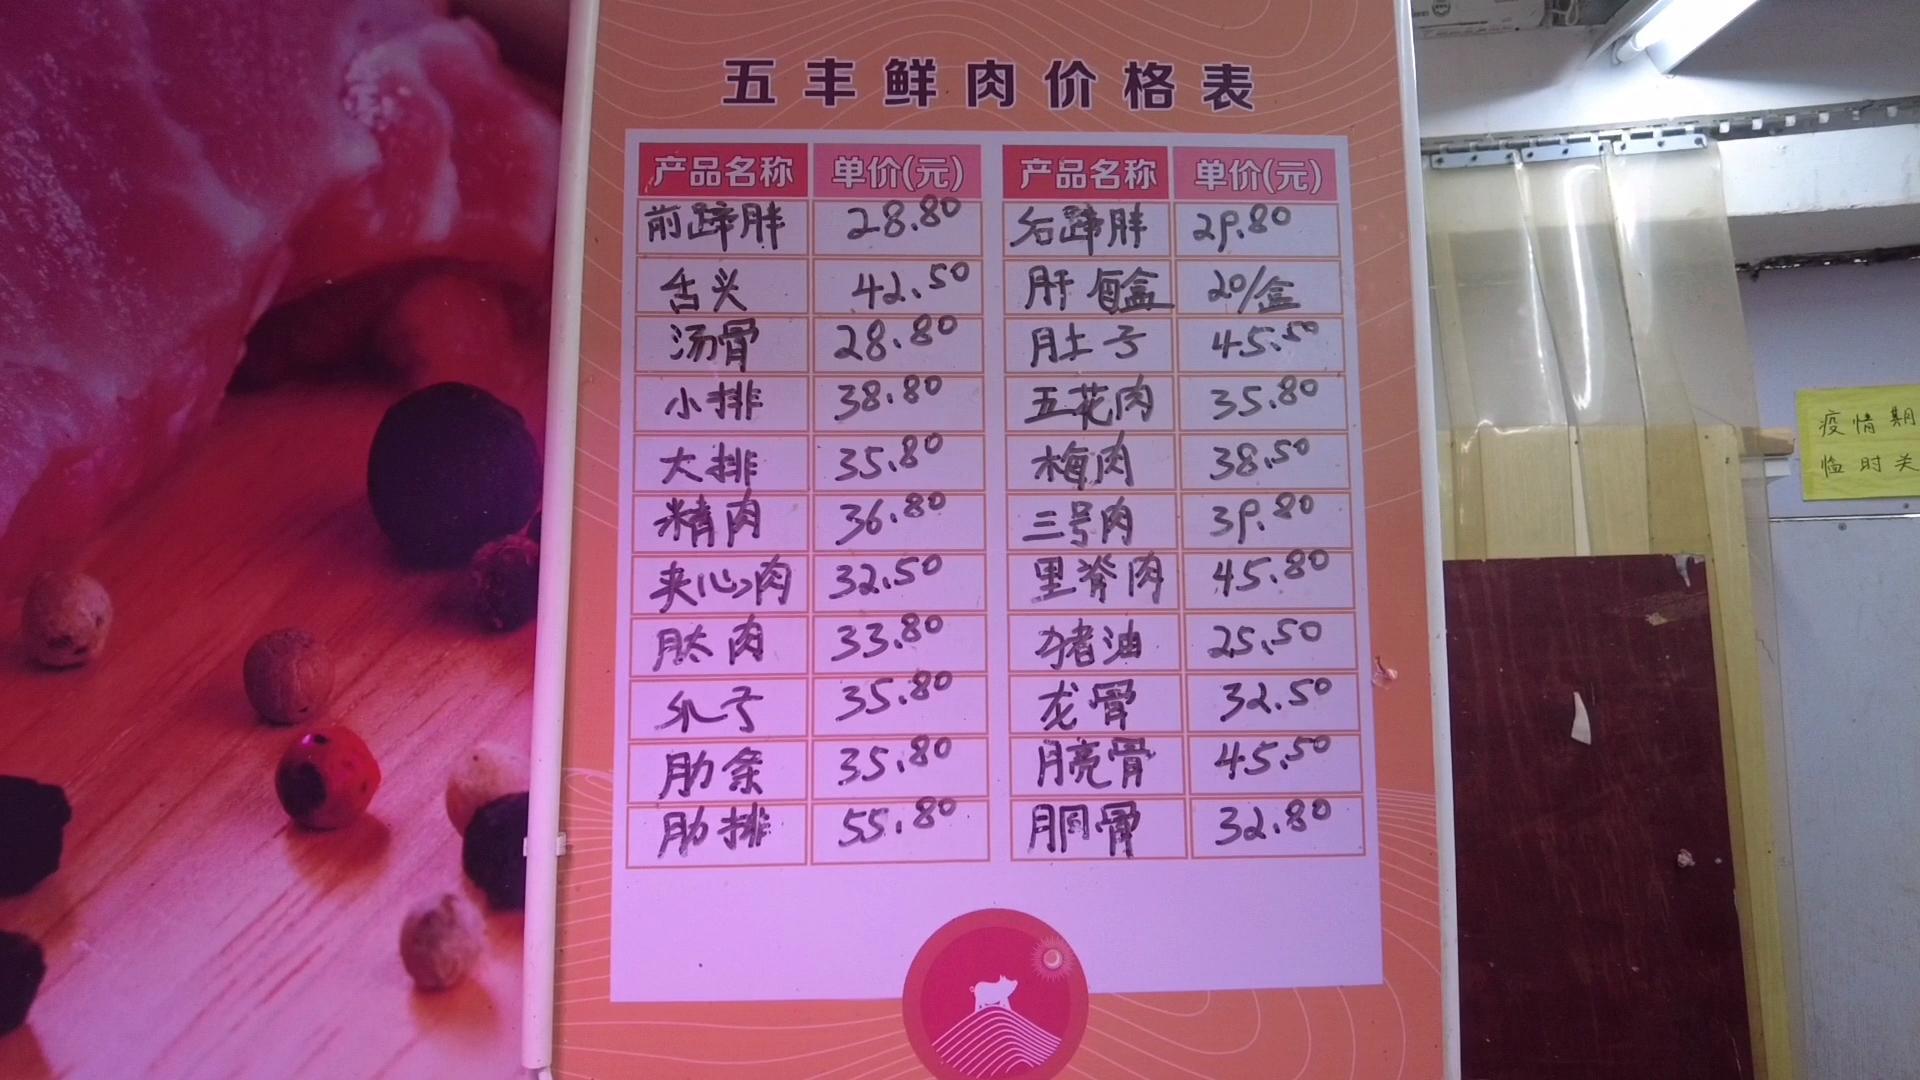 五丰鲜肉价格表
产品名称 单价(元) 产品名称 单价(元)
前蹄胖 28.80 后蹄胖 29.80
舌头 42.50 肝 盒 20/盒
汤骨 28.80 肚子 45.50
小排 38.80 五花肉 35.80
大排 35.80 梅肉 38.50
精肉 36.80 三号肉 39.80
夹心肉 32.50 里脊肉 45.80
肽肉 33.80 猪油 25.50
爪子 35.80 龙骨 32.50
肋条 35.80 骨 45.50
肋排 55.80 胴骨 32.80
疫情期
临时关